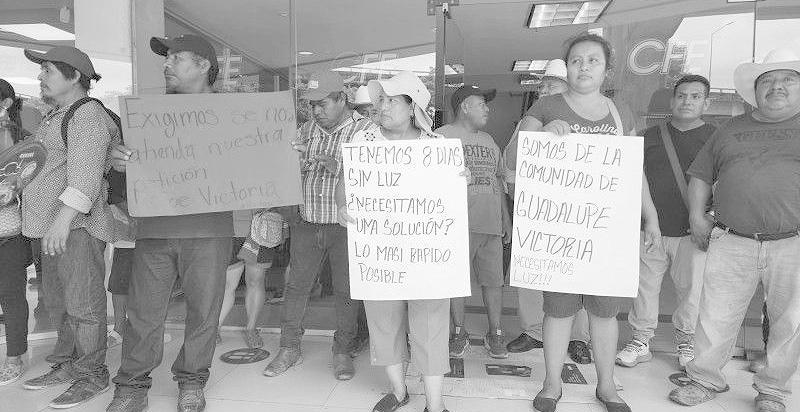 Exigimos se nos
atienda nuestra
Petición
Victoria
TENEMOS 8 DIAS
SIN LUZ
¿NECESITAMOS
UMA SOLUCIÓN?
LO MASI RAPIDO
POSIBLE
SOMOS DE LA
COMUNIDAD DE
GUADALUPE
VICTORIA
NECESITAMOS
LUZ!!!
CFE
Carolina